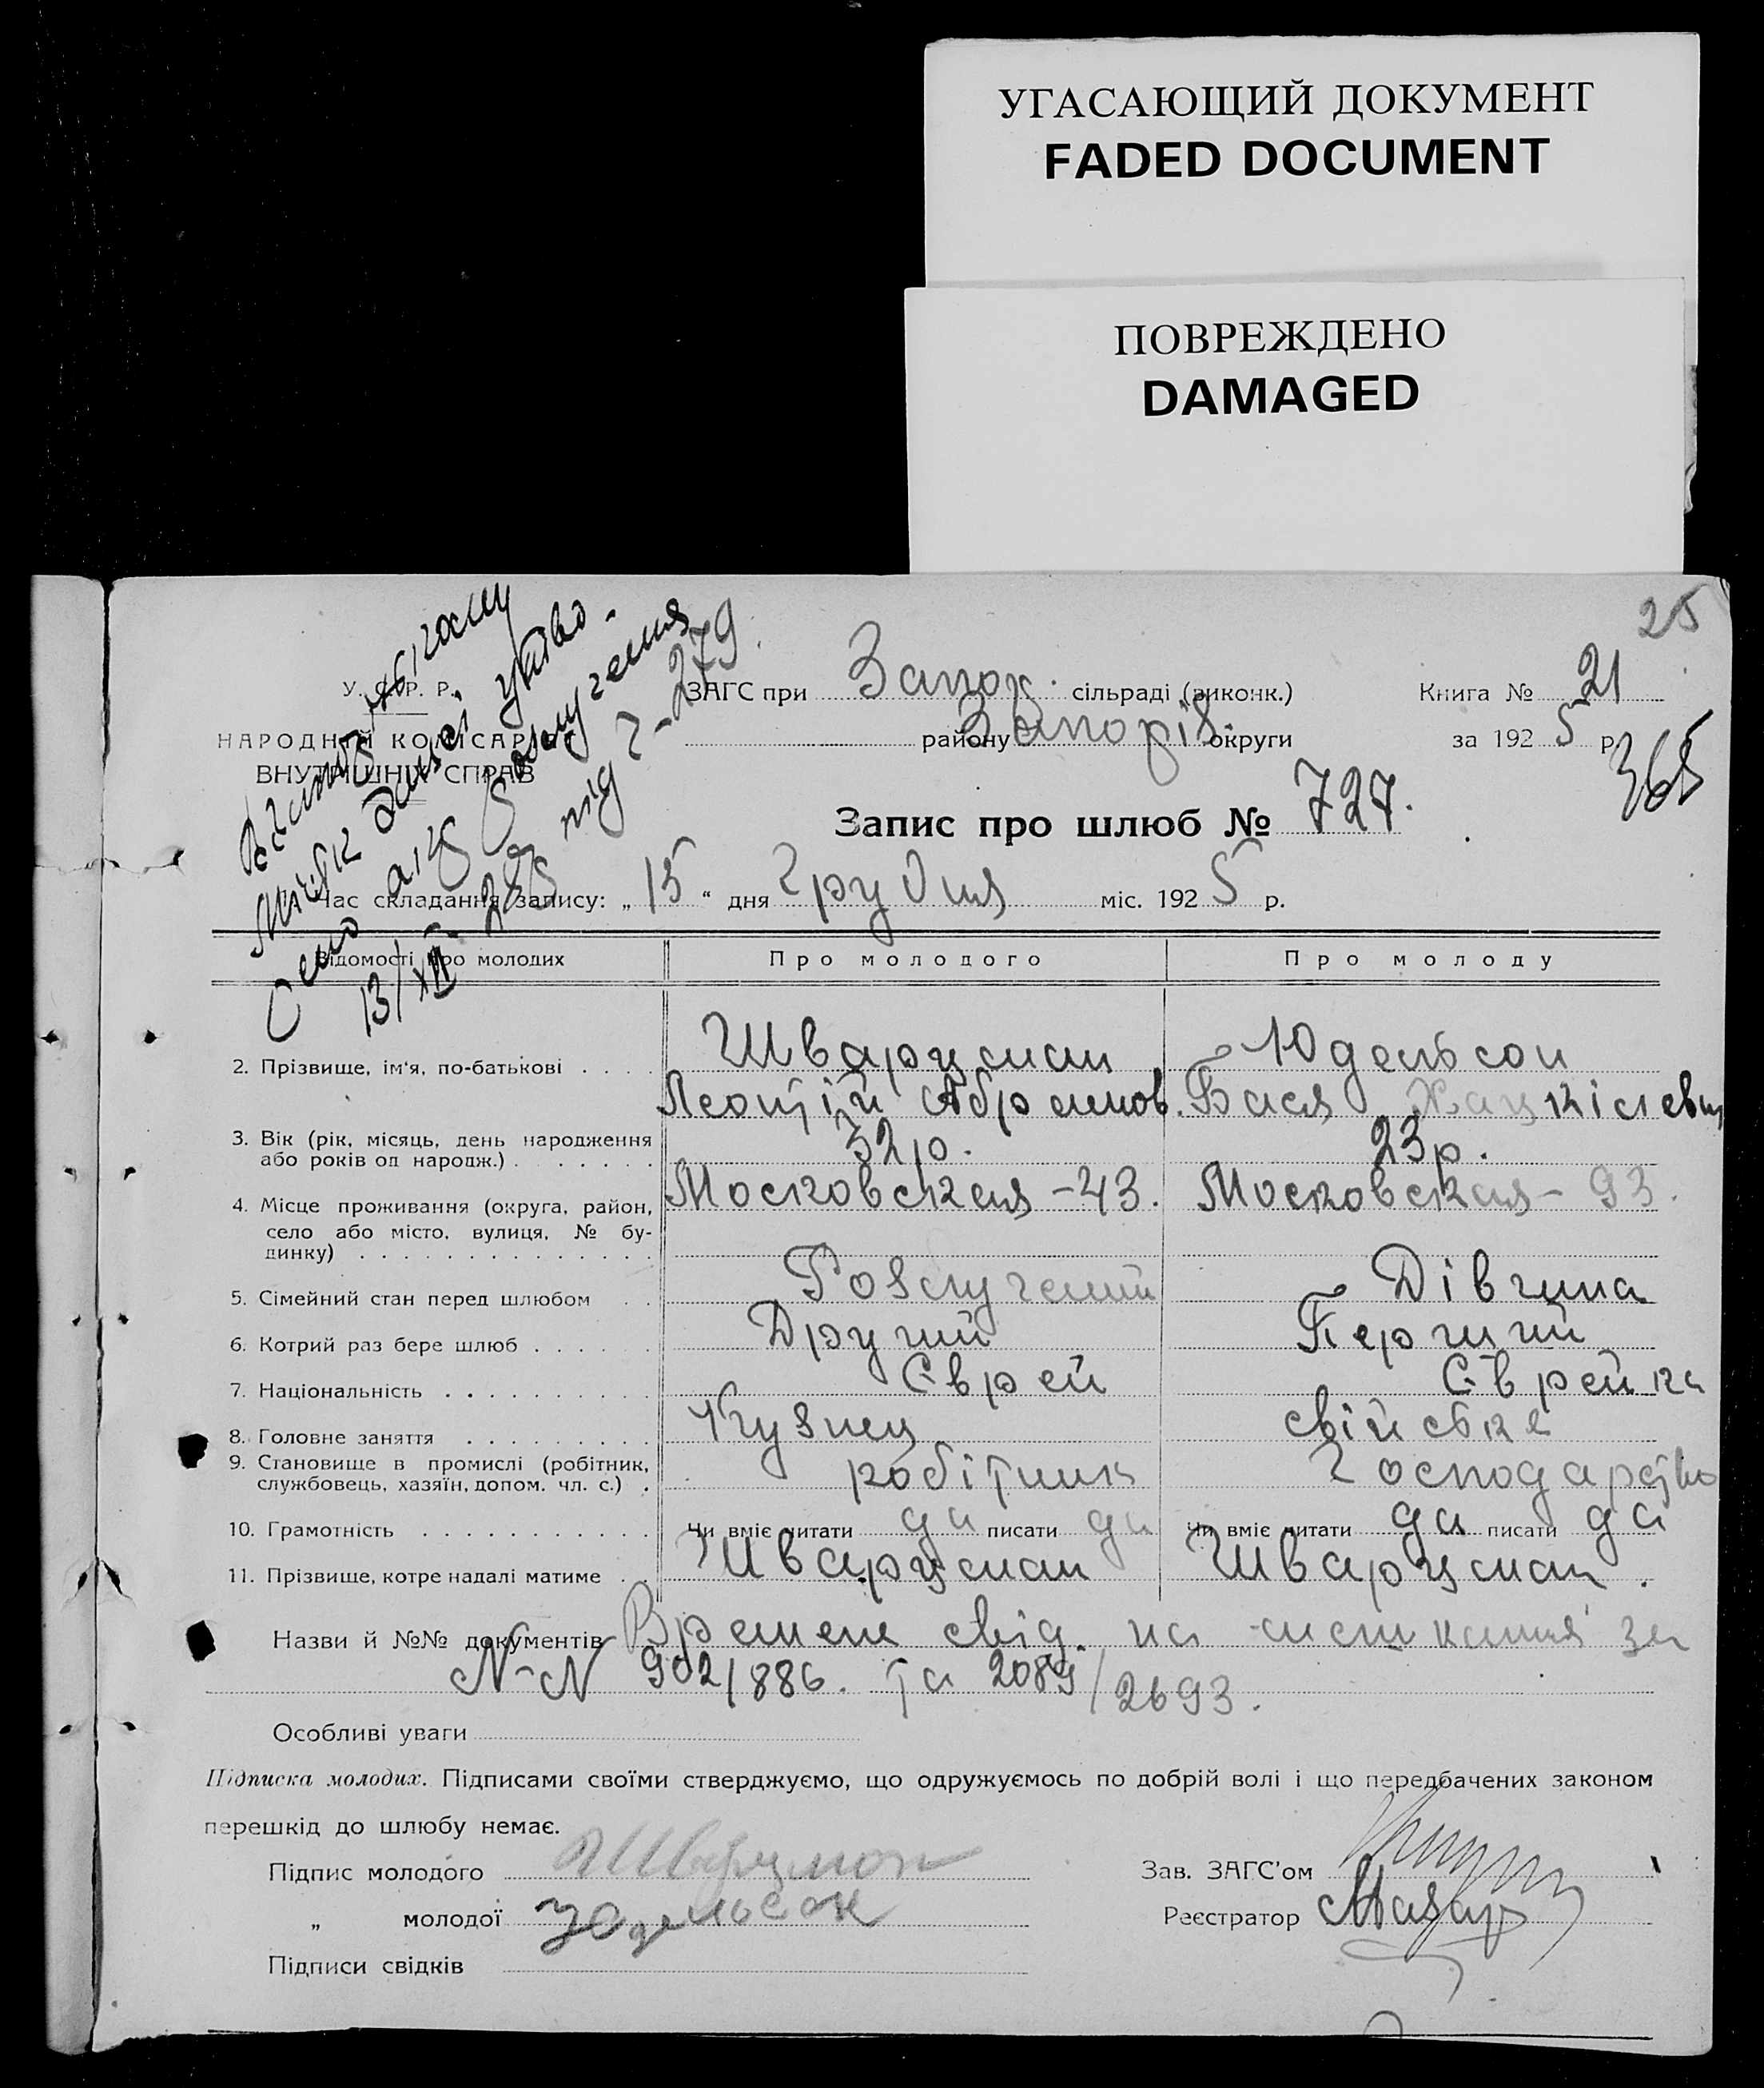 УГАСАЮЩИЙ ДОКУМЕНТ
FADED DOCUMENT
ПОВРЕЖДЕНО
DAMAGED
25
У. С. Р. Р.
НАРОДНІЙ КОМІСАРІАТ
ВНУТРІШНІХ СПРАВ
ЗАГС при Запор. сільраді (виконк.)
району Запоріз. округи
Книга № 21
за 1925 р.
365
Запис про шлюб № 727.
13/XII 28 під 2-279.
Час складання запису: „15“ дня Грудня міс. 1925 р.
Відомості про молодих Про молодого Про молоду
2. Прізвище, ім'я, по-батькові . . . . Шварцман Юдельсон
Леонтій Абрамов. Бася Хацкілевн
3. Вік (рік, місяць, день народження
або років од народж.) . . . . . . . 32 р. 23 р.
4. Місце проживання (округа, район, Московская - 43. Московская - 93.
село або місто, вулиця, № бу-
динку) . . . . . . . . . . . . . .
5. Сімейний стан перед шлюбом . . Розлучений Дівчина
6. Котрий раз бере шлюб . . . . . . Другий Перший
7. Національність . . . . . . . . . . Єврей Єврейка
8. Головне заняття . . . . . . . . . Кузнец свійське
9. Становище в промислі (робітник,
службовець, хазяїн, допом. чл. с.) . робітник господарство
10. Грамотність . . . . . . . . . . . Чи вміє читати да писати да Чи вміє читати да писати да
11. Прізвище, котре надалі матиме . . Шварцман Шварцман.
Назви й №№ документів Времене свід. на мешкання за
N-N 902/886. та 2089/2693.
Особливі уваги
Підписка молодих. Підписами своїми стверджуємо, що одружуємось по добрій волі і що передбачених законом
перешкід до шлюбу немає.
Підпис молодого Шварцман
Зав. ЗАГС'ом
„ молодої Юдельсон
Реєстратор
Підписи свідків